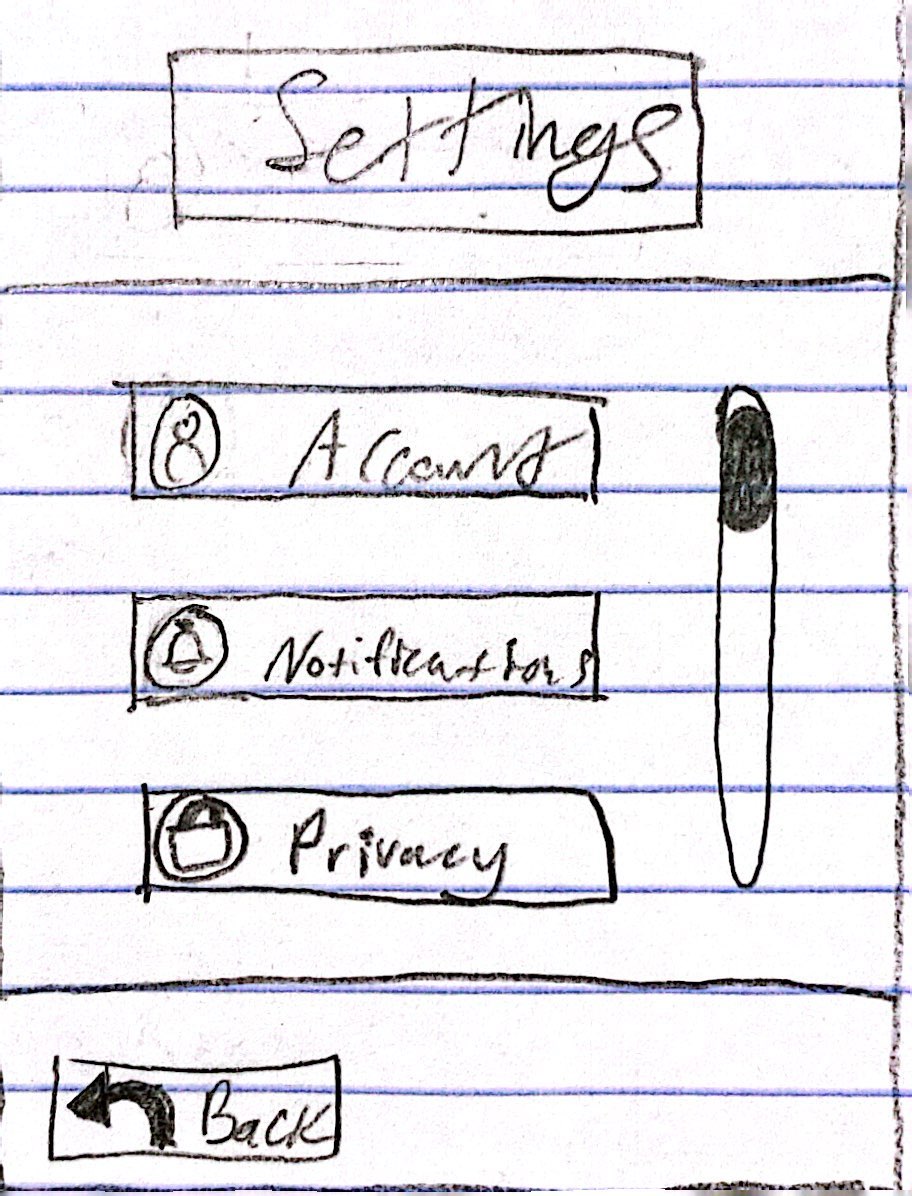 Settings
Account
Notifications
Privacy
Back